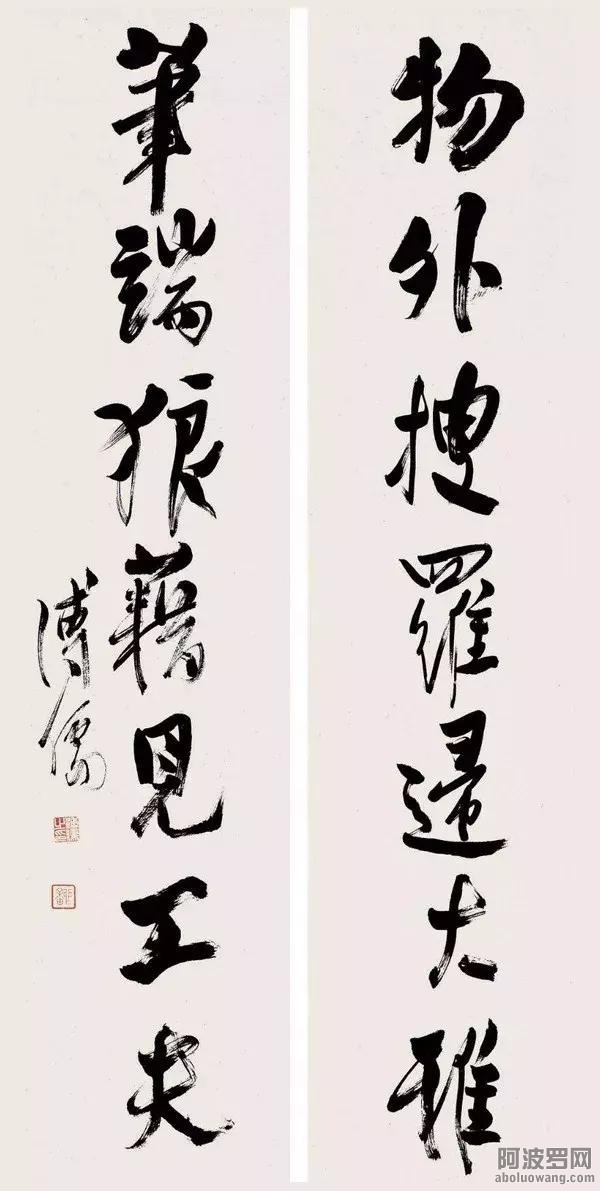 物外搜羅歸大雅
筆端狼藉見工夫
溥儒
阿波罗网
aboluowang.com